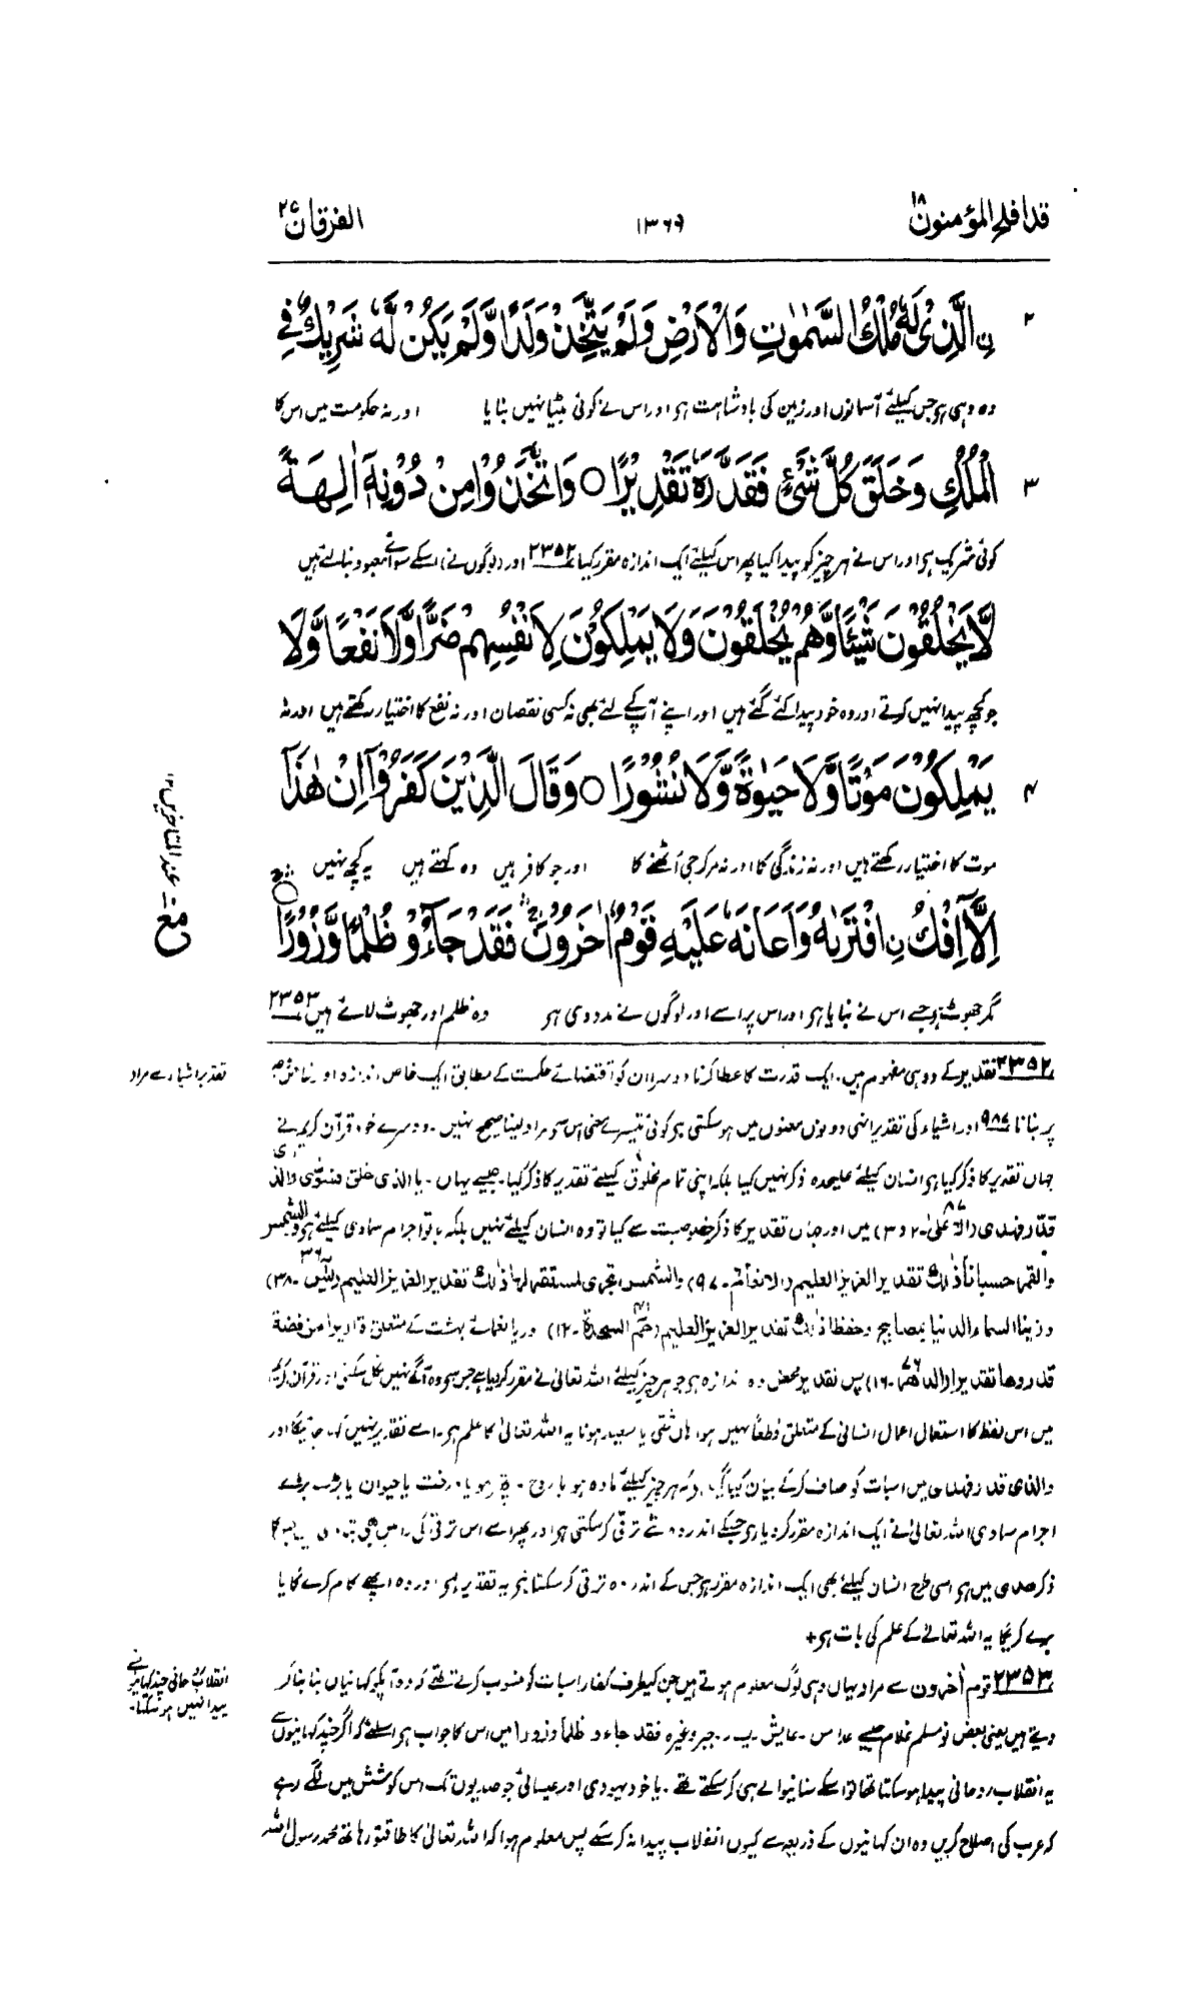 قد افلح المؤمنون ۱۸
۱۳۶۹
الفرقان ۲۵
۲
نِ الَّذِیۡ لَهٗ مُلۡکُ السَّمٰوٰتِ وَالۡاَرۡضِ وَلَمۡ یَتَّخِذۡ وَلَدًا وَّلَمۡ یَکُنۡ لَّهٗ شَرِیۡکٌ فِی
وہ وہی ہو جس کیلئے آسمانوں اور زمین کی بادشاہت ہو اور اس نے کوئی بیٹا نہیں بنایا اور نہ حکومت میں اس کا
۳
الۡمُلۡکِ وَخَلَقَ کُلَّ شَیۡءٍ فَقَدَّرَهٗ تَقۡدِیۡرًا ○ وَاتَّخَذُوۡا مِنۡ دُوۡنِهٖۤ اٰلِهَةً
کوئی شریک ہو اور اس نے ہر چیز کو پیدا کیا پھر اس کیلئے ایک اندازہ مقرر کیا ۲۳۵۲ اور (لوگوں نے) اسکے سوائے معبود بنا لئے ہیں
لَّا یَخۡلُقُوۡنَ شَیۡئًا وَّهُمۡ یُخۡلَقُوۡنَ وَلَا یَمۡلِکُوۡنَ لِاَنۡفُسِهِمۡ ضَرًّا وَّلَا نَفۡعًا وَّلَا
جو کچھ پیدا نہیں کرتے اور وہ خود پیدا کئے گئے ہیں اور اپنے آپ کے لئے بھی نہ کسی نقصان اور نہ نفع کا اختیار رکھتے ہیں اور نہ
۴
یَمۡلِکُوۡنَ مَوۡتًا وَّلَا حَیٰوةً وَّلَا نُشُوۡرًا ○ وَقَالَ الَّذِیۡنَ کَفَرُوۡۤا اِنۡ هٰذَاۤ
موت کا اختیار رکھتے ہیں اور نہ زندگی کا اور نہ مر کر جی اُٹھنے کا اور جو کافر ہیں وہ کہتے ہیں یہ کچھ نہیں
اِلَّاۤ اِفۡکُ نِ افۡتَرٰىهُ وَاَعَانَهٗ عَلَیۡهِ قَوۡمٌ اٰخَرُوۡنَ ۚ فَقَدۡ جَآءُوۡ ظُلۡمًا وَّزُوۡرًا
مگر جھوٹ ہو جسے اس نے بنایا ہو اور اس پر اسے اور لوگوں نے مدد دی ہو وہ ظلم اور جھوٹ لائے ہیں ۲۳۵۳
تقدیر اشیاء سے مراد
۲۳۵۲ تقدیر کے دو ہی مفہوم ہیں۔ ایک قدرت کا عطا کرنا دوسرا ان کو اقتضائے حکمت کے مطابق ایک خاص اندازہ اور
پر بنانا ۹۸۷ اور اشیاء کی تقدیر انہی دونوں معنوں میں ہو سکتی ہو کوئی تیسرے معنی اس سو مراد لینا صحیح نہیں۔ دوسرے خود قرآن کریم نے
جہاں تقدیر کا ذکر کیا ہو انسان کیلئے علیحدہ ذکر نہیں کیا بلکہ اپنی تمام مخلوق کیلئے تقدیر کا ذکر کیا۔ جیسے یہاں۔ یا الذی خلق فسوّی والذی
قدّر فهدی (الاعلٰی ۸۷۔ ۲ و ۳) میں اور جہاں تقدیر کا ذکر خصوصیت سے کیا تو وہ انسان کیلئے نہیں بلکہ یا تو اجرام سماوی کیلئے ہو والشمس
والقمر حسبانا ذٰلک تقدیر العزیز العلیم (الانعام۔ ۹۷) والشمس تجری لمستقر لها ذٰلک تقدیر العزیز العلیم (یٰس ۳۶۔ ۳۸)
وزینا السماء الدنیا بمصابیح وحفظا ذٰلک تقدیر العزیز العلیم (حٰم السجدة ۴۱۔ ۱۲) اور یا نعمائے بہشت کے متعلق قواریرا من فضة
قدروها تقدیرا (الدهر ۷۶۔ ۱۶) پس تقدیر محض وہ اندازہ ہو جو ہر چیز کیلئے اللہ تعالیٰ نے مقرر کر دیا ہے جس سو وہ آگے نہیں نکل سکتی اور قرآن کریم
میں اس لفظ کا استعمال اعمال انسانی کے متعلق قطعاً نہیں ہوا، ہاں شقی یا سعید ہونا یہ اللہ تعالیٰ کا علم ہو۔ اسے تقدیر نہیں کہا جائیگا اور
والذی قدر فهدی میں اسبات کو صاف کر کے بیان کیا کہ ہر چیز کیلئے مادہ ہو یا روح۔ ہو یا درخت یا حیوان یا بڑے بڑے
اجرام سماوی اللہ تعالیٰ نے ایک اندازہ مقرر کر دیا ہو جسکے اندر وہ شے ترقی کر سکتی ہو اور پھر اسے اس ترقی کی راہیں بھی
ذکر ھدی میں ہو اسی طرح انسان کیلئے بھی ایک اندازہ مقرر ہو جس کے اندر وہ ترقی کر سکتا ہو یہ تقدیر ہو اور وہ اچھے کام کرے گا یا
برے کریگا یہ اللہ تعالیٰ کے علم کی بات ہو +
انقلاب روحانی چند کہانیوں سے
پیدا نہیں ہو سکتا۔
۲۳۵۳ قوم اٰخرون سے مراد یہاں وہی لوگ معلوم ہوتے ہیں جن کیطرف کفار اسبات کو منسوب کرتے تھے کہ وہ آپکو کہانیاں بنا بنا کر
دیتے ہیں یعنی بعض نو مسلم غلام جیسے عداس۔ عایش۔ جبر وغیرہ فقد جاءو ظلما وزورا میں اس کا جواب ہو اسلئے کہ اگر چند کہانیوں سے
یہ انقلاب روحانی پیدا ہو سکتا تھا تو اسکے سنانیوالے ہی کر سکتے تھے۔ یا خود یہودی اور عیسائی جو صدیوں تک اس کوشش میں لگے رہے
کہ عرب کی اصلاح کریں وہ ان کہانیوں کے ذریعہ سے کیوں انقلاب پیدا نہ کر سکے پس معلوم ہوا کہ اللہ تعالیٰ کا طاقتور ہاتھ محمد رسول اللہ